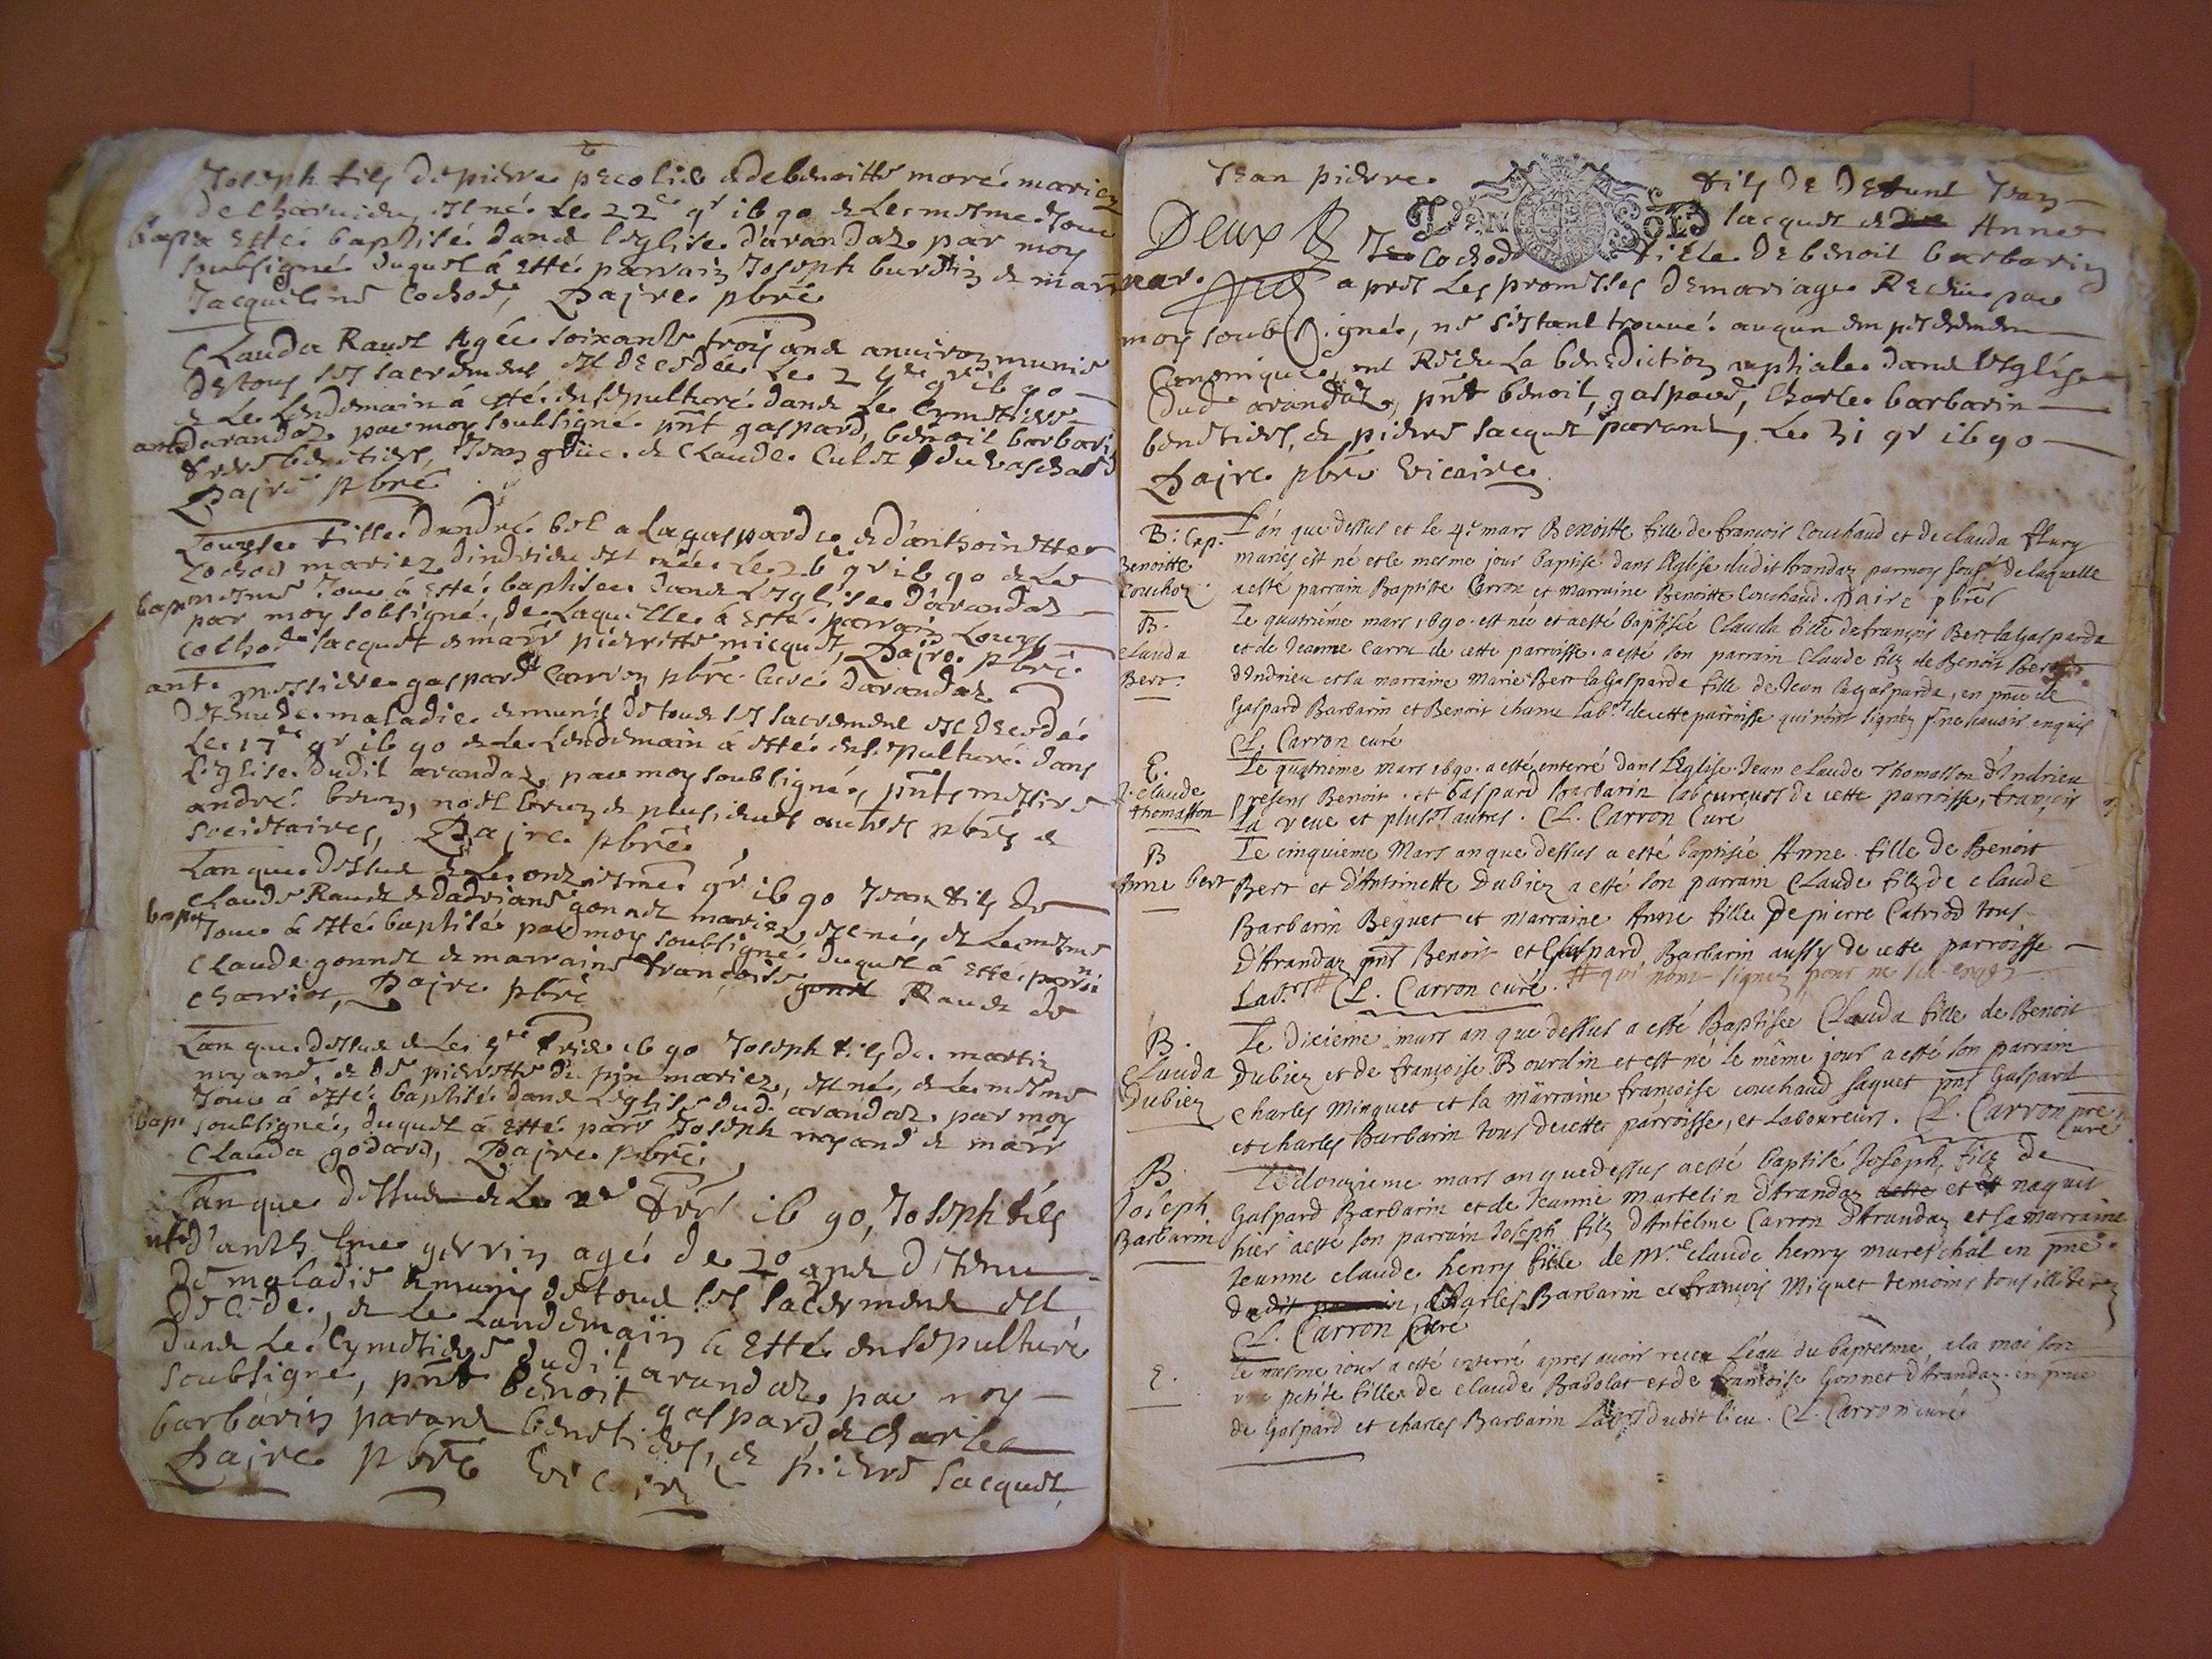 Joseph fils de pierre pecolier & de benoitte moré mariez
de charvieu, est né le 22e gr 1690 & le mesme jour
bap a esté baptisé dans l'église d'arandaz par moy
soubsigné duquel a esté parrain Joseph burdin & marr
Jacqueline cochod, Dajre pbre
Clauda Raust agée soixante trois ans anviron munie
de tous ses sacrements est decedée le gr 1690
& le lendemain á esté ensepulturé dans le cymetiere
ant darandaz par moy soubsigné pnt gaspard, benoit barbarin
frere benetiers, Jean & Claude Culet du
Dajre pbre
Louyse fille dandré bel a la gasparde & d'anthoinette
cochod mariez d'indrieu est née le 26e gr 1690 & le
bap mesme jour á esté baptisee dans l'eglise d'arandaz
par moy sobsigné, de laquelle á esté parrain Louys
cochod sacquet & marr pierrette micquet, Dajre pbre
ant. messire gaspard Carron pbre curé darandaz
detenu de maladie & munis de tous ses sacrement est decedé
le 17e gr 1690 & le lendemain á esté ensepulturé dans
l'eglise dudit arandaz par moy soubsigné, pnts messire
andré brun, noel brun & plusieurs aultres pbres &
societaires, Dajre pbre
Lan que dessus & le onziesme gr 1690 Jean fils de
claude Raust & dadriane gonnet mariez est né, & le mesme
bap jour á esté baptisé par moy soubsigné duquel á esté parrin
claude gonnet & marraine françoise gonet Raust de
charviet, Dajre pbre
Lan que dessus & le fvrier 1690 Joseph fils de martin
noyand, & de pierrette du pin mariez, est né, & le mesme
jour á esté baptisé dans l'eglise dud arandaz par moy
bap soubsigné, duquel á esté parr Joseph noyand & marr
Clauda godard, Dajre pbre
Lan que dessus & le 2e fvr 1690, Joseph fils
d'anthelme gervin agé de 20 ans detenu
de maladie & munis de tous ses sacrements est
decede, & le landemain a esté ensepulturé
dans le cymetiere dudit arandaz par moy
soubsigné, pnt benoit gaspard & charles
barbarin parans benetiers, & pierre sacquet
Dajre pbre vicaire
Jean pierre fils de defunt Jean
Deux s sold sacquet & Anne
Cochod fille de benoit barbarin
mar. apres les promesses de mariage Receu par
moy soubsigné, ne s'estant trouvé auqun empeschement
Canonique, ont Receu la benediction nuptiale dans l'eglise
dud arandaz, pnt benoit, gaspard, charles barbarin
benetiers, & pierre sacquet parans, le 31 gr 1690
Dajre pbre vicaire
B: Cap. L'an que dessus et le 4e mars Benoitte fille de francois Couchaud et de clauda flury
Benoitte mariés est né et le mesme jour baptisé dans l'Eglise dudit Arandaz par moy sousé de laquelle
Couchoz a esté parrain Baptiste Carron et marraine Benoitte Couchaud. Daire pbre
B. Le quatriéme mars 1690. est née et a esté baptisée Clauda fille de françois Bert la Gasparda
clauda et de Jeanne Carru de cette parroisse. a esté son parrain Claude filz de Benoit Bert
Bert. d'Indrieu et sa marraine Marie Bert la Gasparda fille de Jean la gasparda, en pnce de
Gaspard Barbarin et Benoit chanu labrs de cette parroisse qui n'ont signéz p. ne scavoir enquis
Cl. Carron curé
E. Le quatriéme mars 1690. a esté enterré dans l'Eglise Jean claude Thomasson d'Indrieu
J. claude présens Benoit et Gaspard Barbarin laboureurs de cette parroisse, françois
thomasson la veue et plusrs autres. Cl. Carron Curé
B Le cinquieme Mars an que dessus a esté baptisée Anne fille de Benoit
Anne bert Bert et d'Antoinette Dubiez a esté son parrain Claude filz de claude
Barbarin Bequet et marraine Anne fille de pierre Catriod tous
D'Arandaz pns Benoit et Gaspard Barbarin aussy de cette parroisse
Lab.rs # Cl. Carron curé. # qui n'ont signez pour ne sca. enqz
B. Le diciéme mars an que dessus a esté Baptisée Clauda fille de Benoit
Clauda Dubiez et de françoise Bourdin et est né le même jour a esté son parrain
Dubiez Charles Minquet et la marraine françoise couchaud saquet pns Gaspard
et charles Barbarin tous de cette parroisse, et Laboureurs. Cl. Carron pre curé
B. Le douzieme mars an que dessus a esté baptisé Joseph, filz de
Joseph Gaspard Barbarin et de Jeanne Martelin d'Arandaz et est naquis
Barbarin hier a esté son parrain Joseph filz d'Antelme Carron d'Arandaz et sa marraine
Jeanne claude henry fille de Mre claude henry mareschal en pnce
dudit parrain, Charles Barbarin et françois Miquet temoins tous illiterez
Cl. Carron Curé
E. le mesme jour a esté enterré apres avoir receu l'eau du baptesme a la maison
une petite fille de claude Babolat et de francoise Gonnet d'Arandaz en pnce
de Gaspard et charles Barbarin Labrs dudit lieu. Cl. Carron curé